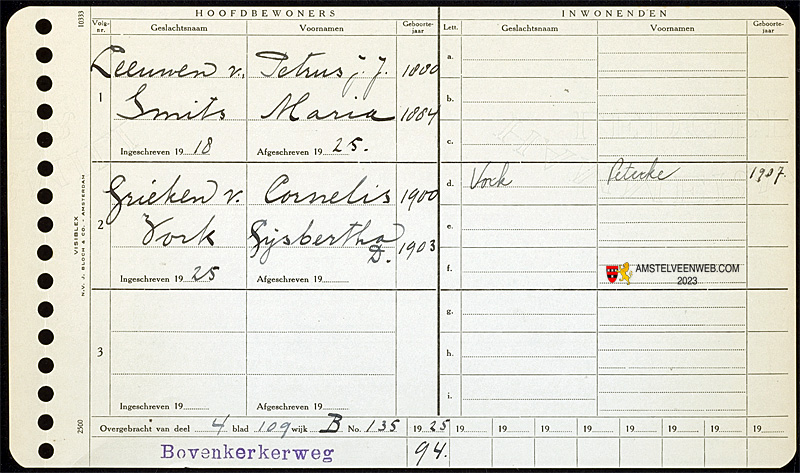 HOOFDBEWONERS INWONENDEN
Volg-nr. Geslachtsnaam Voornamen Geboorte-jaar Lett. Geslachtsnaam Voornamen Geboorte-jaar
Leeuwen v. Petrus J. J. 1880 a.
1 Smits Maria 1884 b.
c.
Ingeschreven 19 18 Afgeschreven 19 25.
Grieken v. Cornelis 1900 d. Vork Peterke 1907.
2 Vork Gijsbertha D. 1903 e.
Ingeschreven 19 25 Afgeschreven 19 f.
AMSTELVEENWEB.COM
2023
g.
3 h.
Ingeschreven 19 Afgeschreven 19 i.
Overgebracht van deel 4 blad 109 wijk B No. 135 19 25 19 19 19 19 19 19 19 19
Bovenkerkerweg 94.
10333
VISIBLEX
N.V. J. BLOCH & CO. - AMSTERDAM
2500